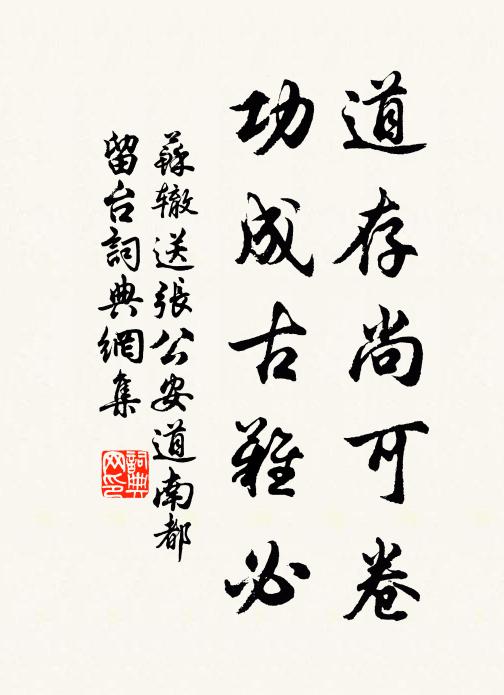 道存尚可卷
功成古難必
蘇辙送張公安道南都
留台詞典網集
詞典网印